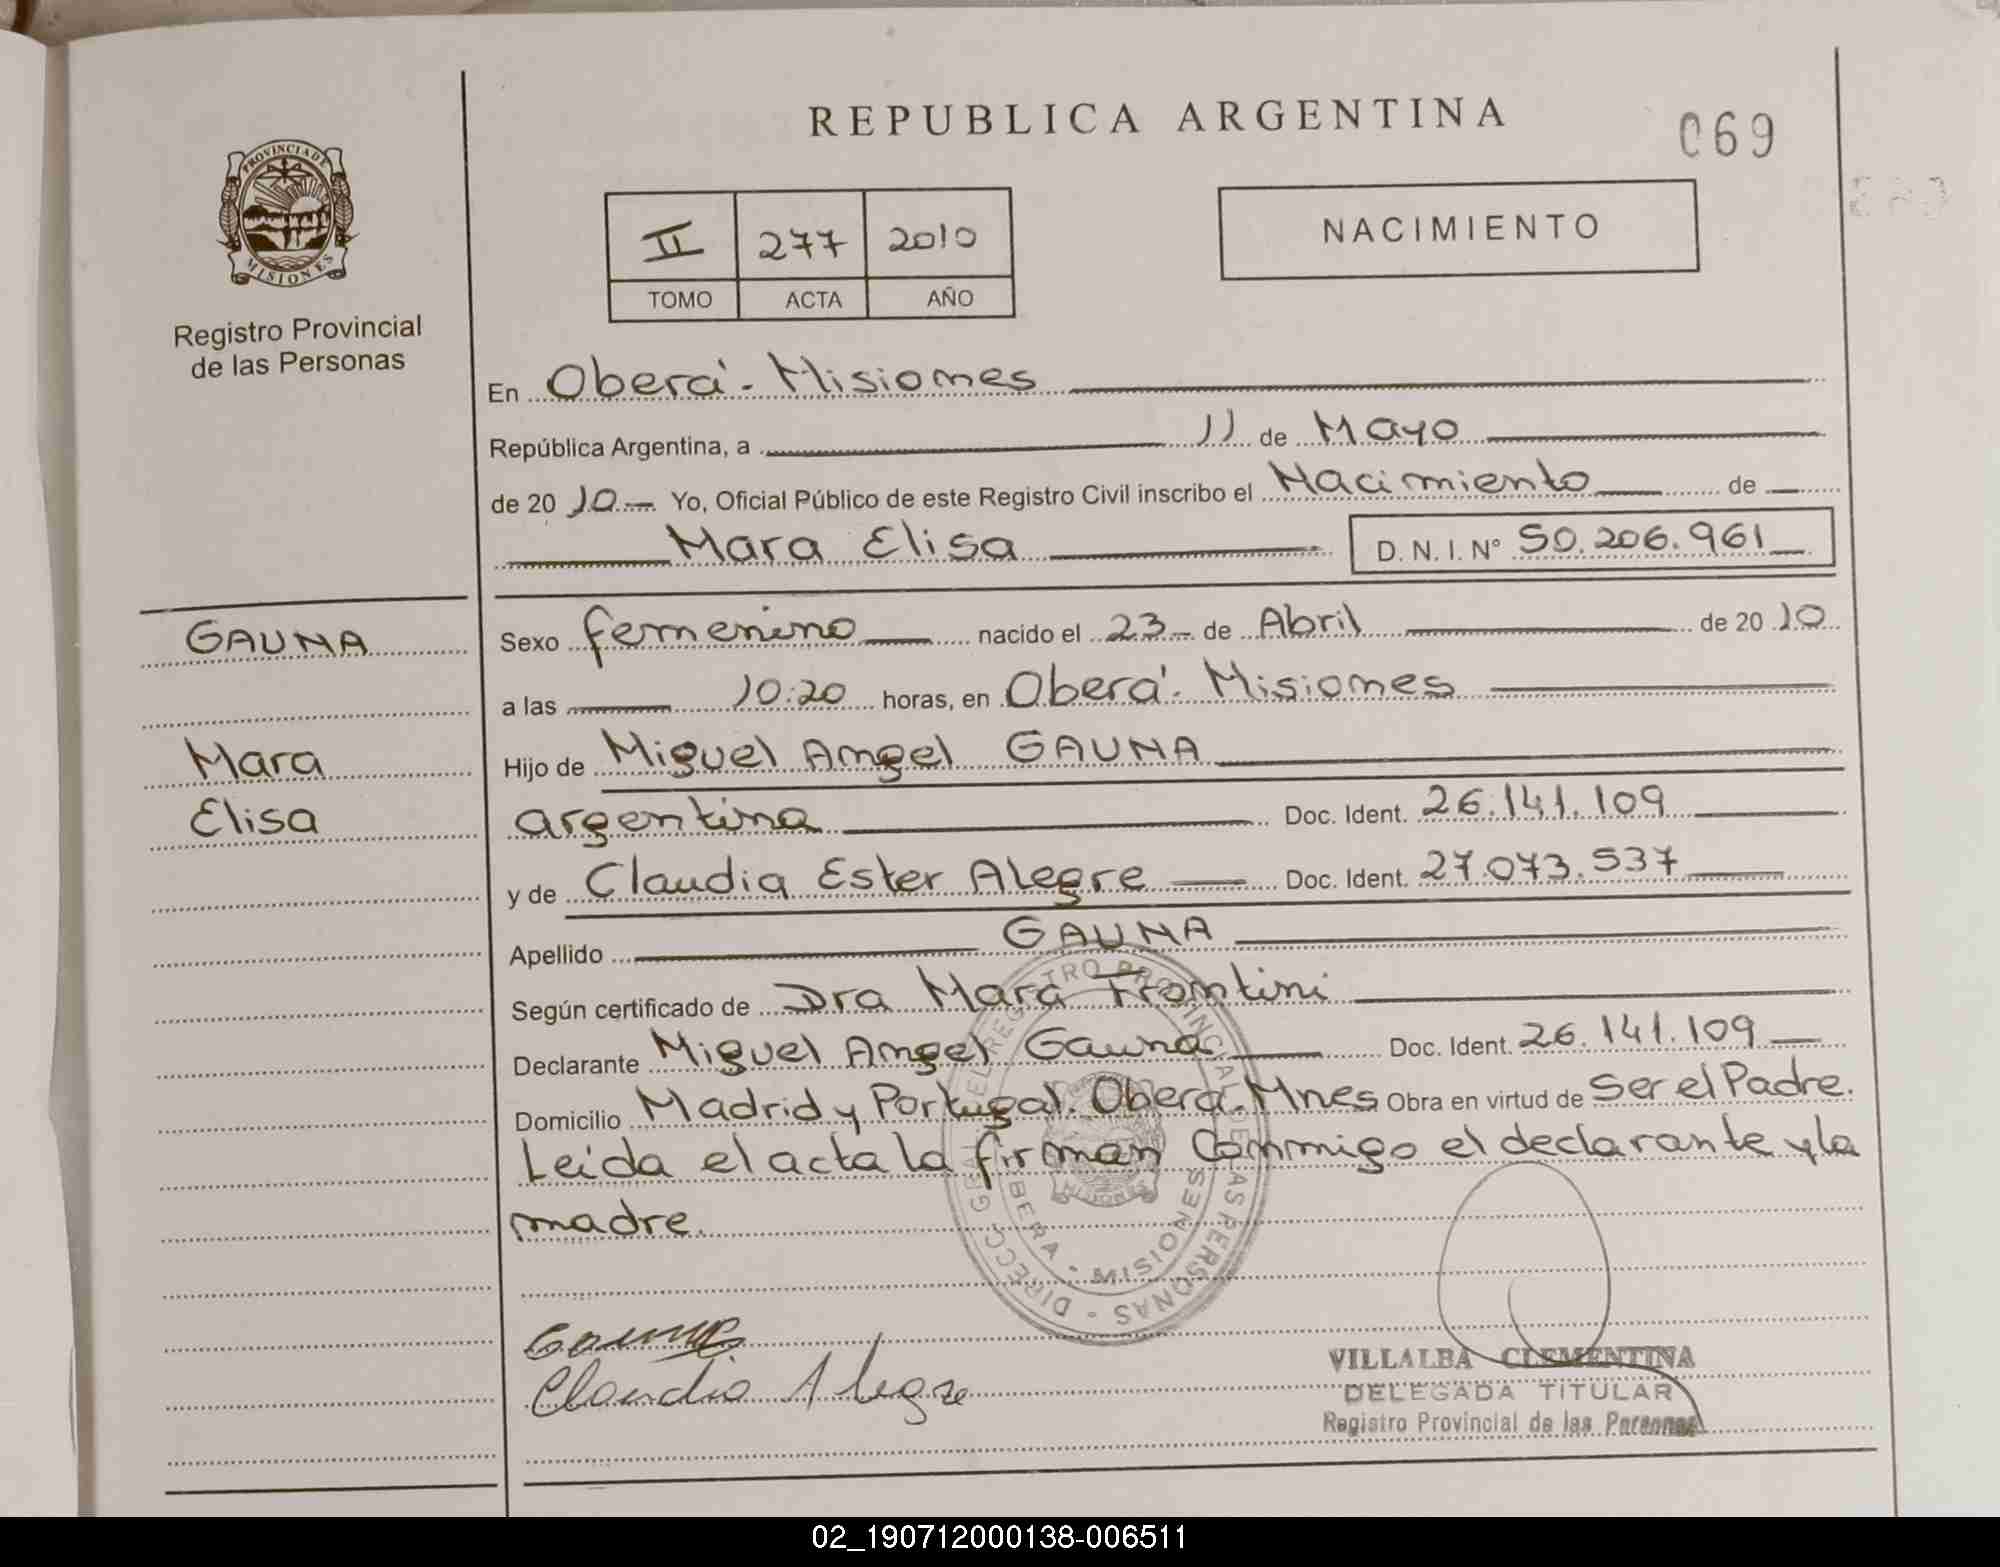 REPUBLICA ARGENTINA
069
PROVINCIA DE
MISIONES
Registro Provincial
de las Personas
II 277 2010
TOMO ACTA AÑO
NACIMIENTO
En Oberá - Misiones
República Argentina, a 11 de Mayo
de 20 10 Yo, Oficial Público de este Registro Civil inscribo el Nacimiento de
Mara Elisa D.N.I. Nº 50.206.961
GAUNA
Mara
Elisa
Sexo femenino nacido el 23 de Abril de 20 10
a las 10:20 horas, en Oberá - Misiones
Hijo de Miguel Angel GAUNA
argentina Doc. Ident. 26.141.109
y de Claudia Ester Alegre Doc. Ident. 27.073.537
Apellido GAUNA
Según certificado de Dra Mara Frontini
Declarante Miguel Angel Gauna Doc. Ident. 26.141.109
Domicilio Madrid y Portugal. Oberá - Mnes Obra en virtud de Ser el Padre.
Leida el acta la firman Conmigo el declarante y la
madre.
DIRECC. GRAL. DEL REGISTRO PROVINCIAL DE LAS PERSONAS
OBERA - MISIONES
MISIONES
Gauna
Claudia Alegre
VILLALBA CLEMENTINA
DELEGADA TITULAR
Registro Provincial de las Personas
02_190712000138-006511